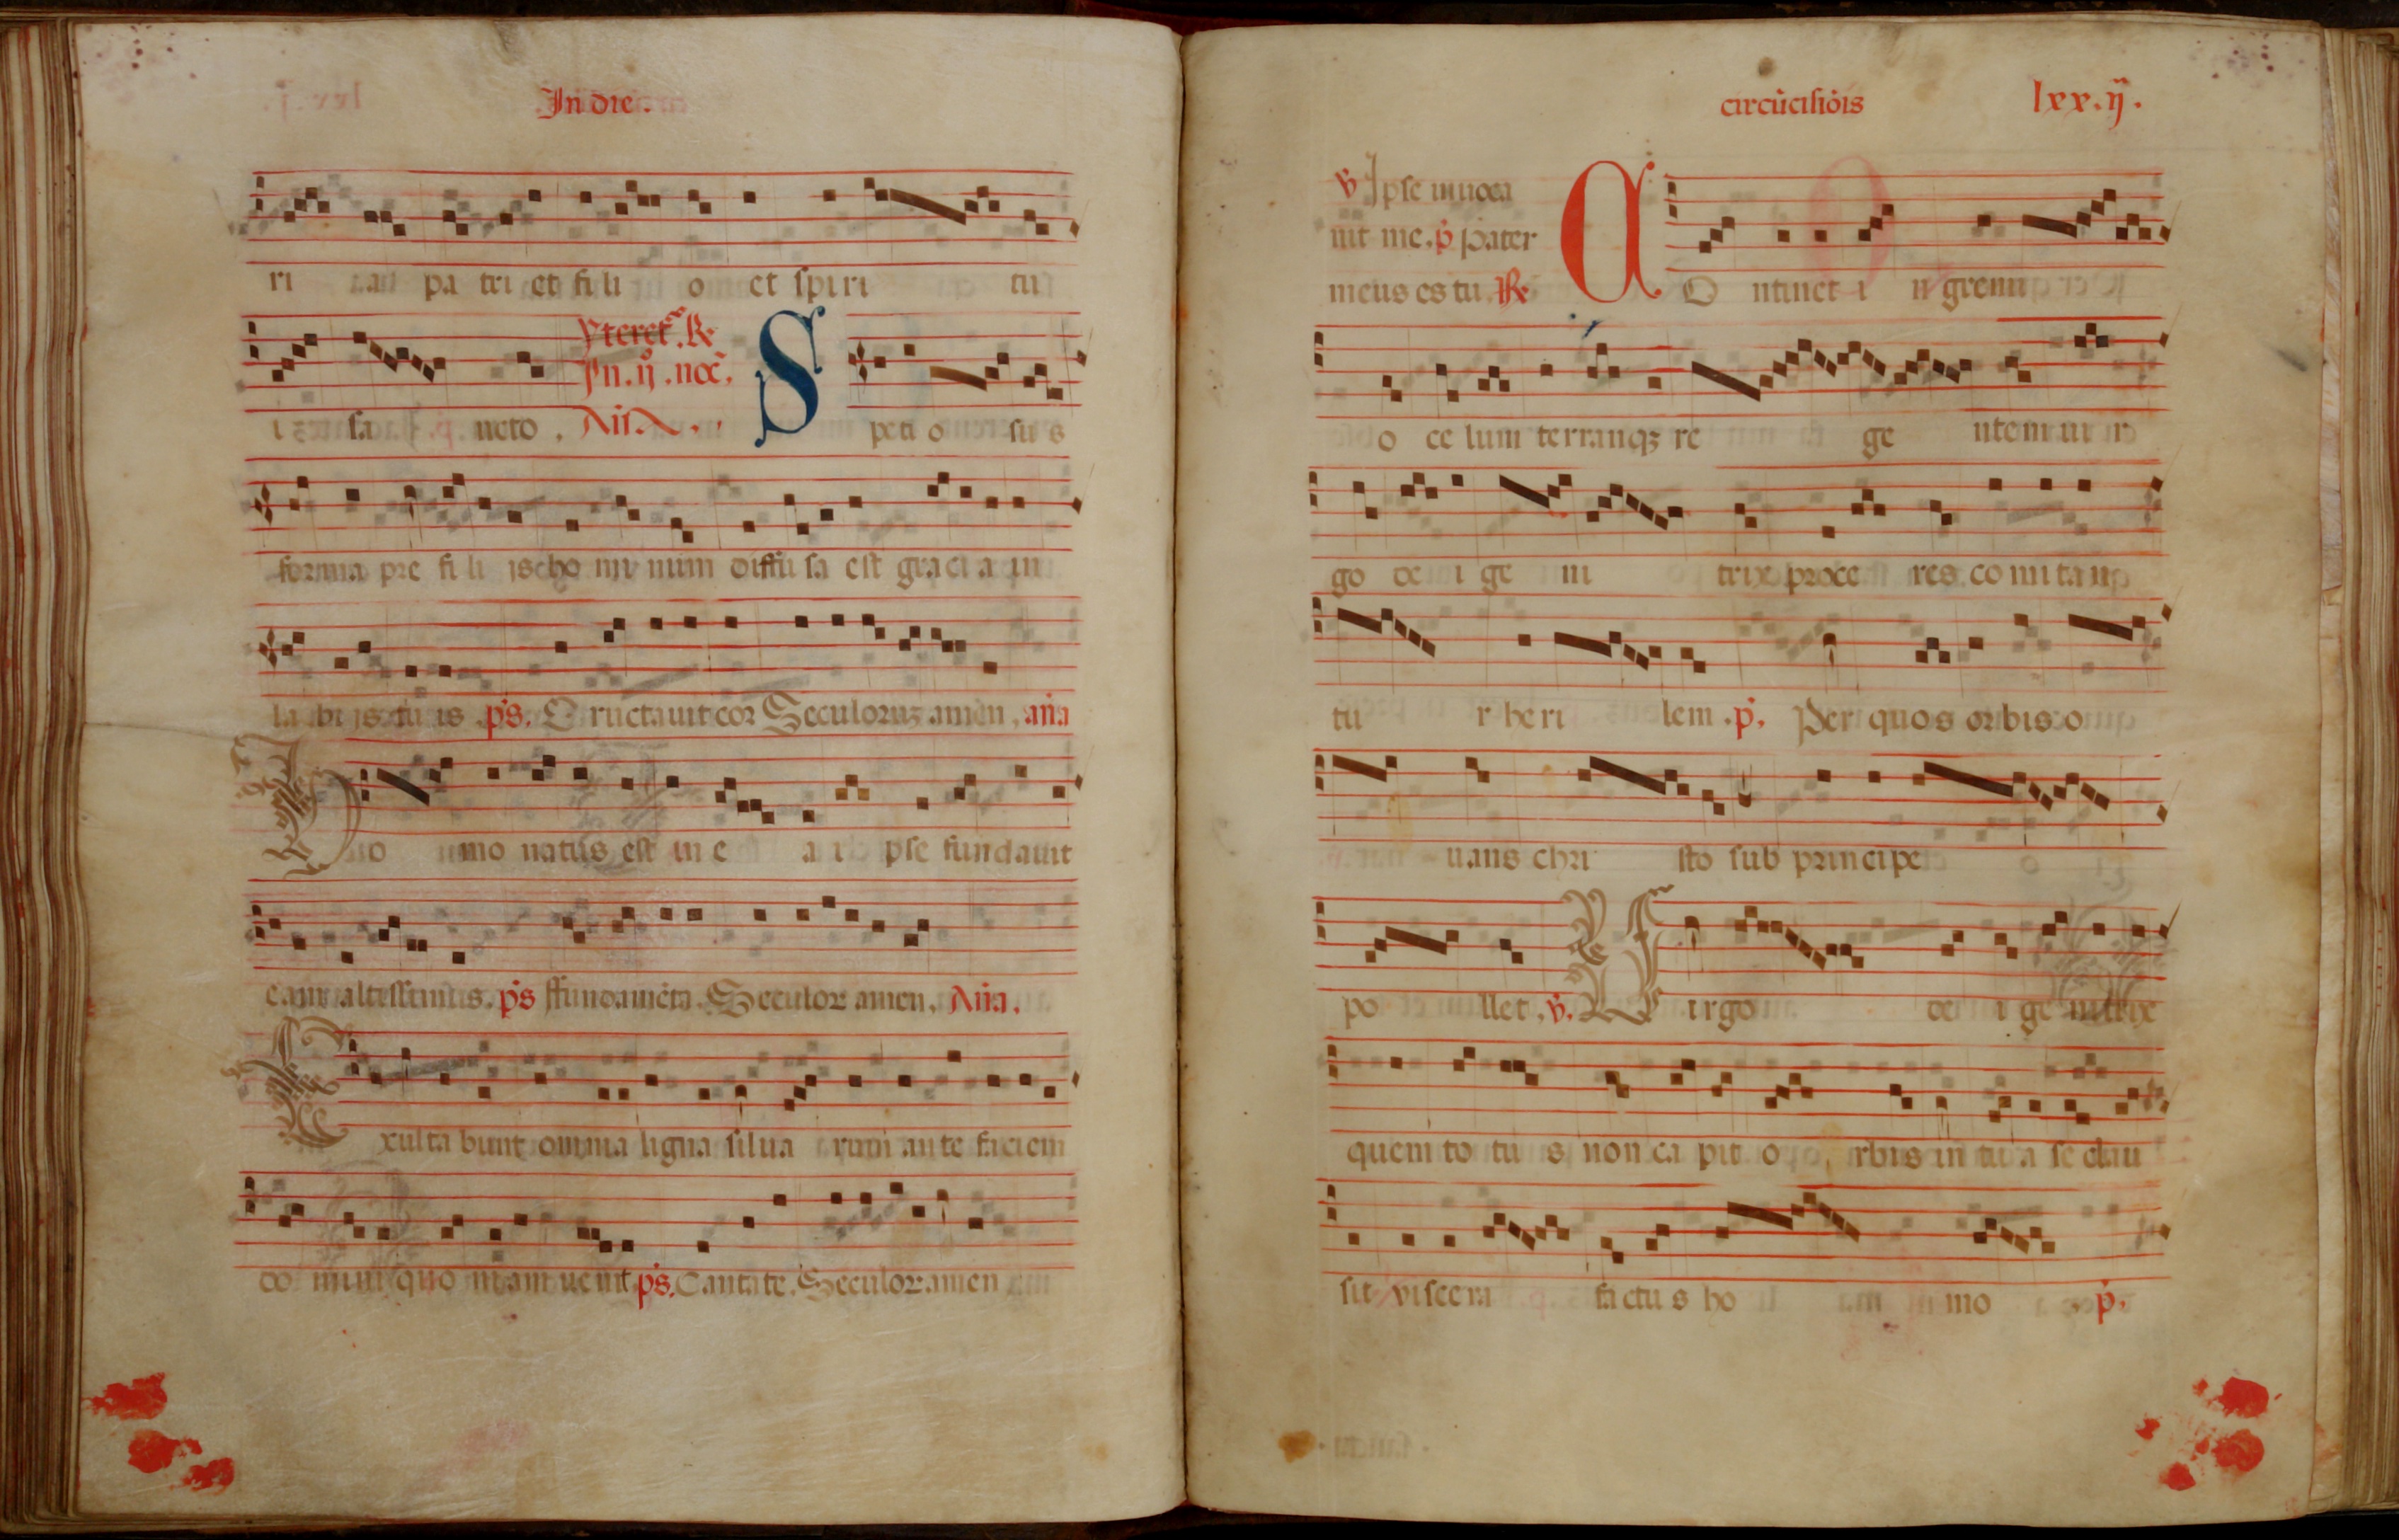 In die.
ri a pa tri et fi li o et spiri tu
i sa ncto.
yteret℣. ℟
Jn. ij. noc̄.
Añ.
S peti o su s
forma pre fi li is ho mi num diffu sa est graci a in
la bi is tu is p̄s. Eructauit cor Seculoruz amen. añа
Ho mo natus est in e a i pse fundauit
eam altissimus. p̄s ffundamēta. Seculor amen. Añа.
Exulta bunt omnia ligna silua rum an te faciem
do mini quo niam uenit p̄s. Cantate. Seculor. amen
circūcisiōis lxx.ij.
℣ Jpse inuoca
uit me. p̄ Pater
meus es tu. ℟
C O ntinet i n gremi
o ce lum terramqꝫ re ge ntem ui r
go de i ge ni trix proce res comitan
tu r heri lem. p̄. Per quos orbis o
uans chri sto sub principe
po llet. ℣. Virgo de i ge nitrix
quem to tu s non ca pit o rbis in tu a se clau
sit viscera factus ho mo p̄.